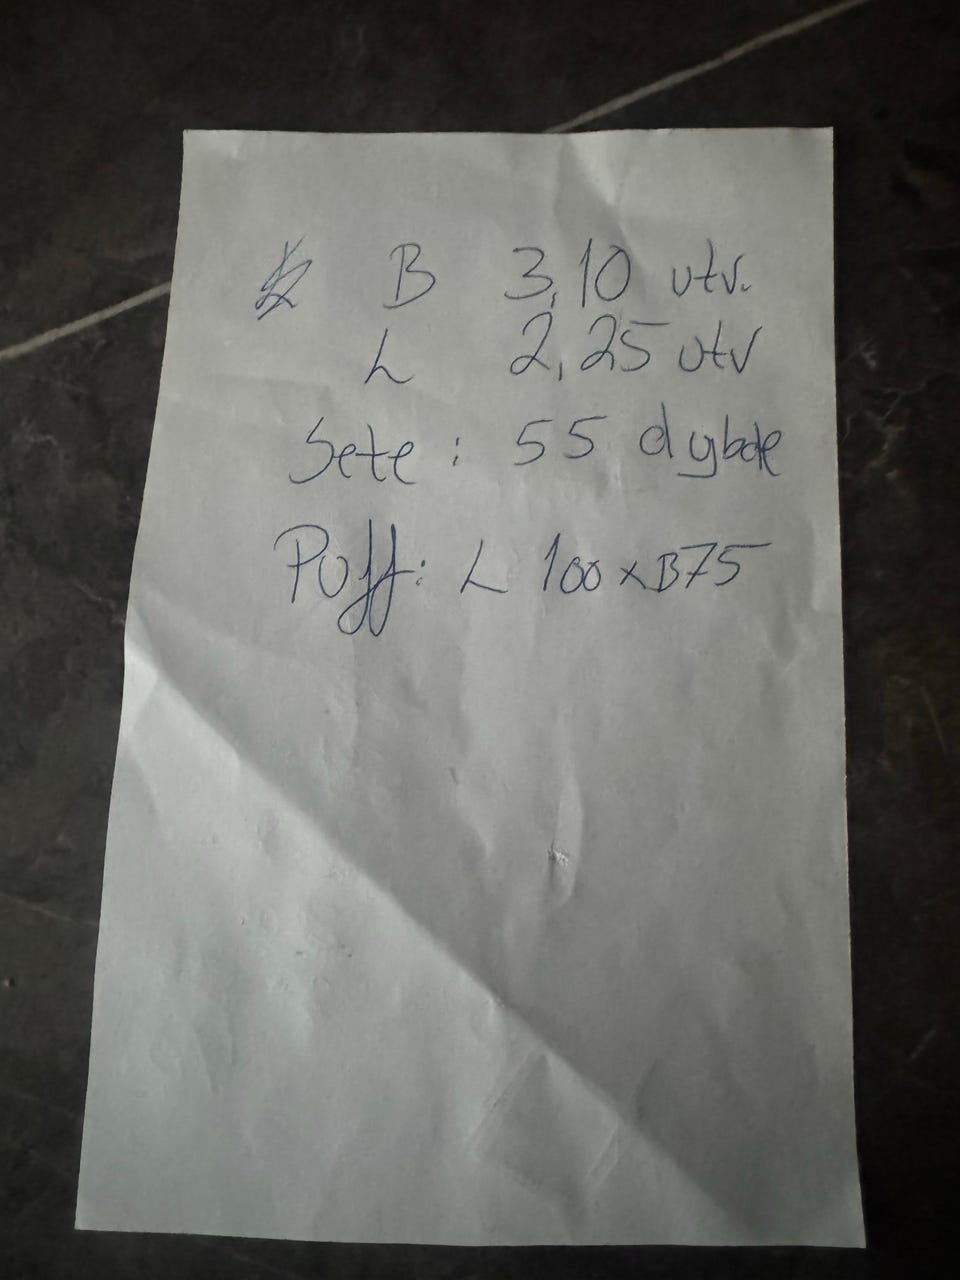 B 3,10 utv.
L 2,25 utv
Sete : 55 dybde
Puff: L 100 x B75